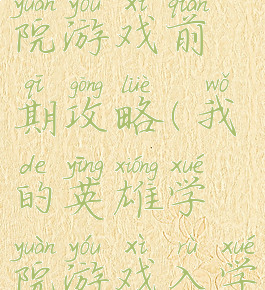 yuàn yóu xì qián
院游戏前
qī gōng lüè wǒ
期攻略(我
de yīng xióng xué
的英雄学
yuàn yóu xì rù xué
院游戏入学